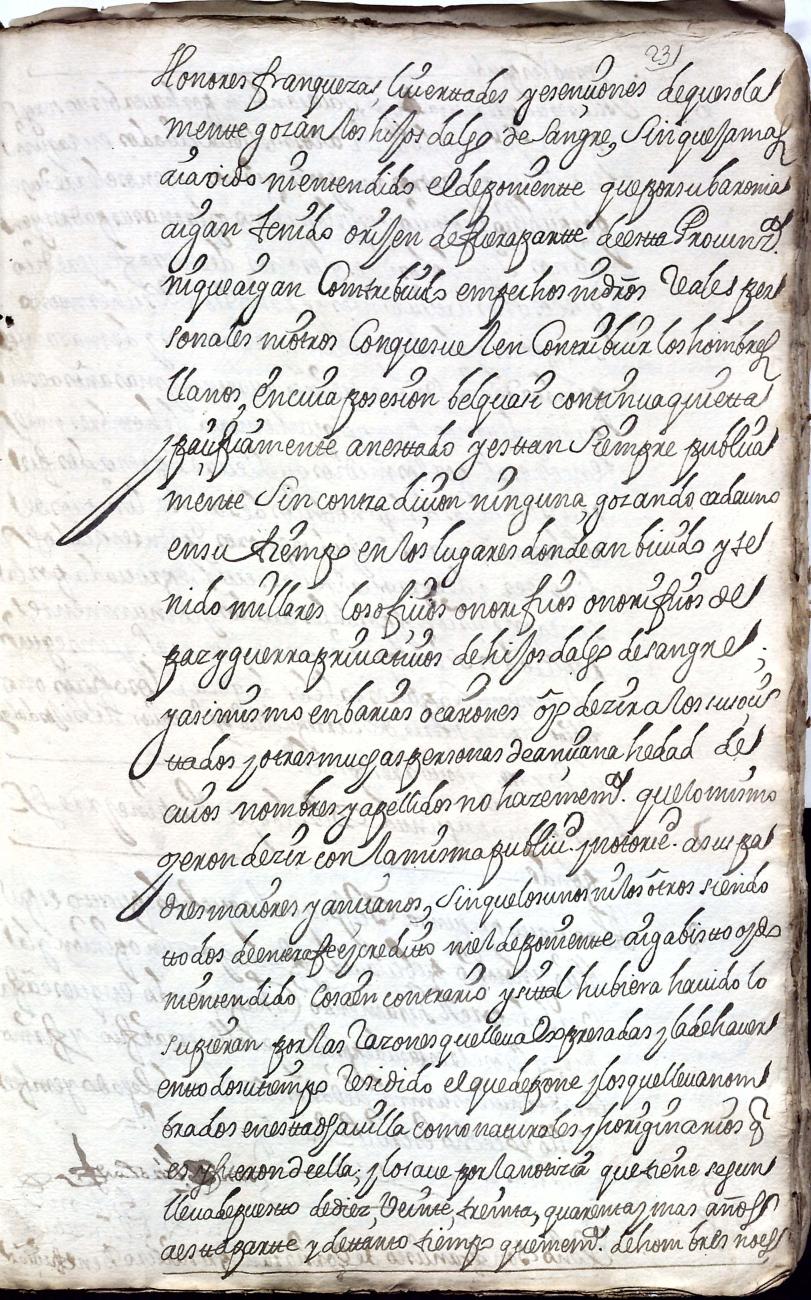 231
Honores franquezas livertades yesenciones dequesola
mentte gozan los hijos dalgo de sangre, sin que jamas
aia oido nientendido el deponientte que por su baronia
aigan tenido orijen de fuera partte de estta Provinzª.
nique aigan Contribuido en pechos nidros Reales per
sonales niotros Conquesuelen Contribuir los hombres
llanos, En cuia posesion bel quasi continua quietta
pacificamentte an esttado y esttan siempre publica
mentte sin contradicion ninguna, gozando cada uno
en su tiempo en los lugares donde an bivido y te
nido millares los oficios onorificos onorificos de
paz y guerra privativos de hijos dalgo de sangre;
y asimismo en barias ocasiones oyo dezir a los susoci
ttados y otras muchas personas de anciana hedad de
cuios nombres y apellidos no haze memª. que lo mismo
oyeron dezir con la misma publicd. y notoried. a sus pa
dres maiores y ancianos, sin que los unos ni los otros siendo
ttodos de entera fee y creditto ni el deponientte aiga bistto oydo
nientendido cosa en contrario y si ttal hubiera havido lo
supieran por las Razones que lleva Expresadas y la de haver
en ttodo su tiempo Residido el que depone y los que lleva nom
brados en estta dha villa como naturales y horiginarios q
es y fueron de ella; y los que por la notizia que tiene segun
lleva depuestto de diez, Veinte, treinta, quarenta y mas años
a estta partte y de ttanto tiempo que memª. de hombres no es